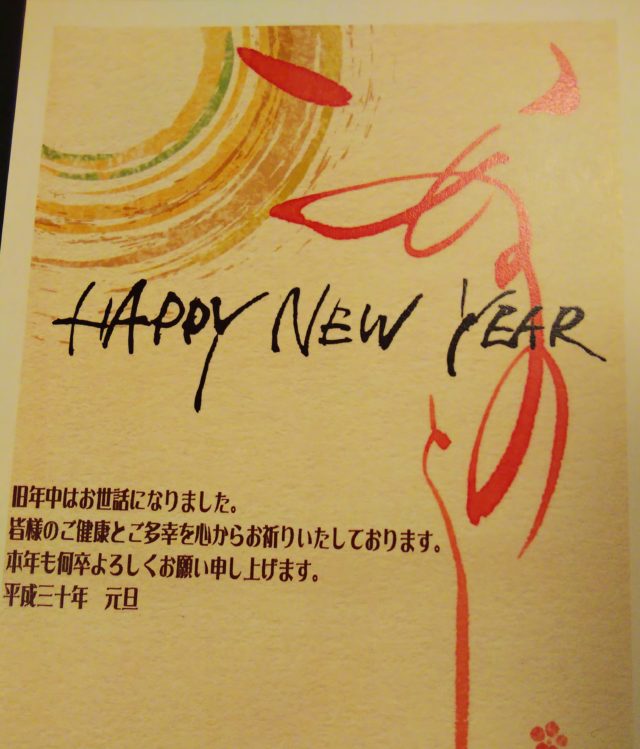 HAPPY NEW YEAR
旧年中はお世話になりました。
皆様のご健康とご多幸を心からお祈りいたしております。
本年も何卒よろしくお願い申し上げます。
平成三十年　元旦